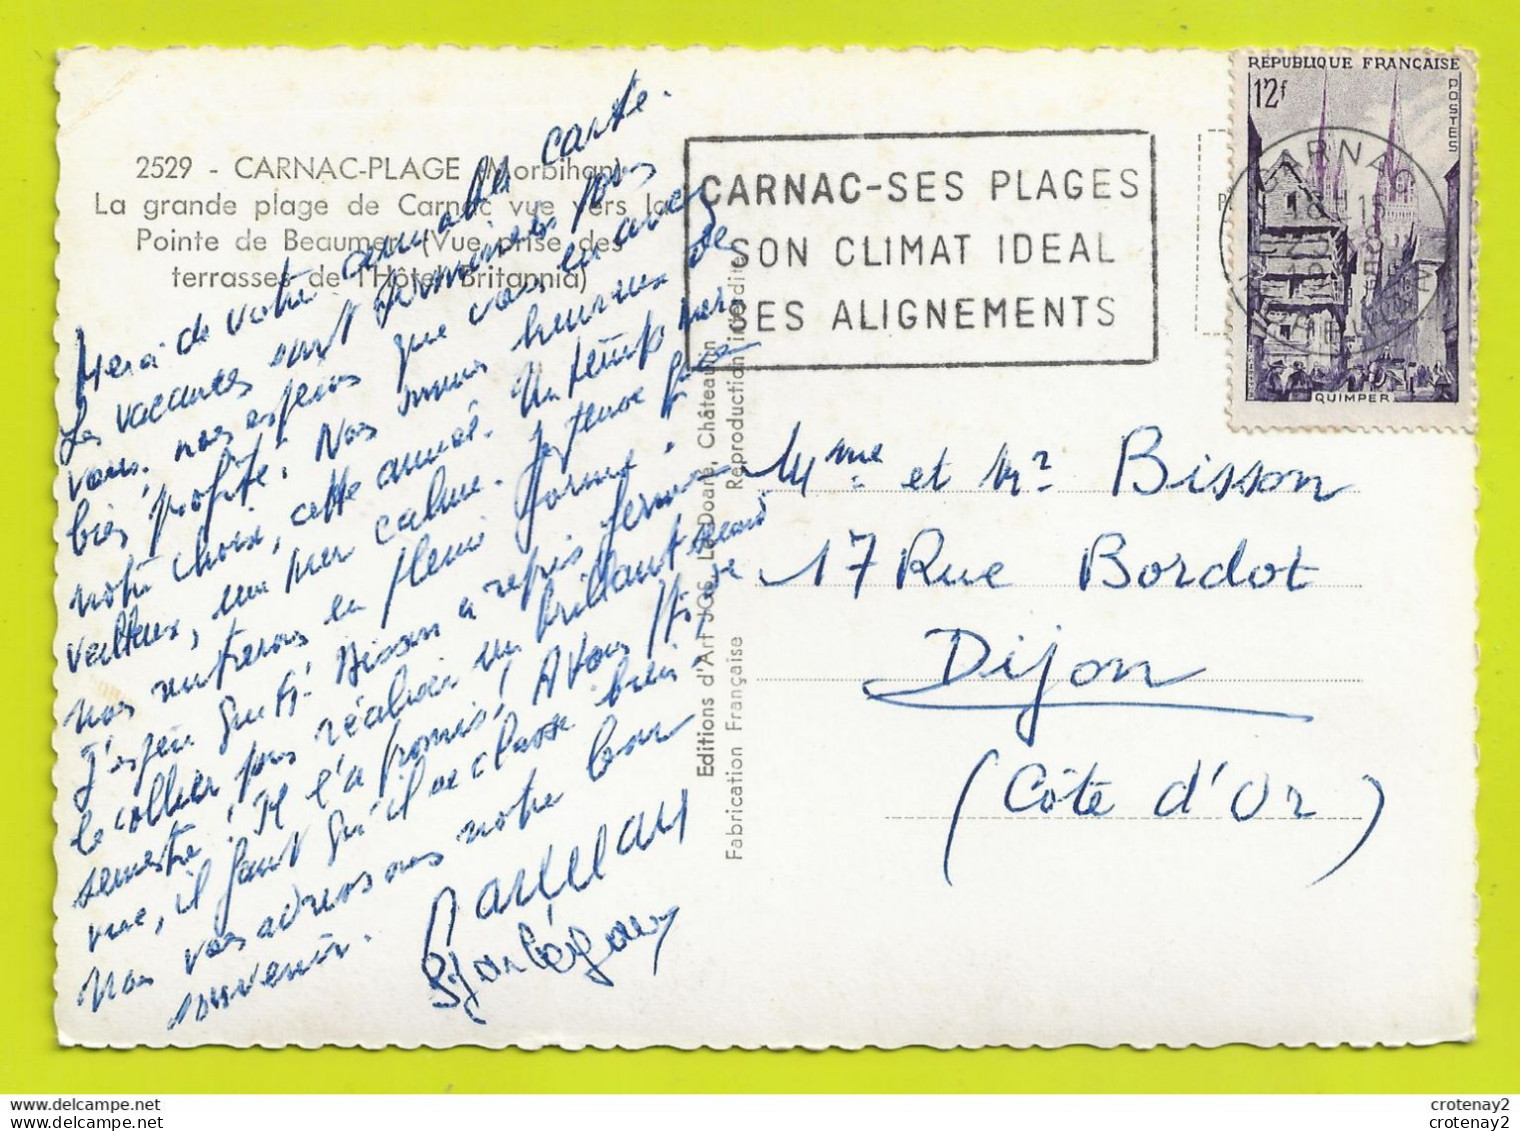 2529 - CARNAC-PLAGE (Morbihan)
La grande plage de Carnac vue vers la
Pointe de Beaumer (Vue prise des
terrasses de l'Hôtel Britannia)
Merci de votre aimable carte.
Les vacances sont terminées pour
vous, nous espérons que vous en avez
bien profité. Nous sommes heureux de
notre choix, cette année. Un temps mer
veilleux, une mer calme. Je pense que
nous rentrerons en pleine forme.
J'espère que Mr. Bisson a repris fermement
le collier pour réaliser un brillant second
semestre. Il l'a promis! A vous
vue, il faut qu'il se classe bien.
Nous vous adressons notre bon
souvenir.
CARNAC-SES PLAGES
SON CLIMAT IDEAL
SES ALIGNEMENTS
RÉPUBLIQUE FRANÇAISE
12f
POSTES
QUIMPER
CARNAC
Mme et Mr Bisson
17 Rue Bordot
Dijon
(Côte d'Or)
Editions d'Art JOS Le Doaré, Châteaulin
Reproduction interdite
Fabrication Française
crotenay2
crotenay2
crotenay2
crotenay2